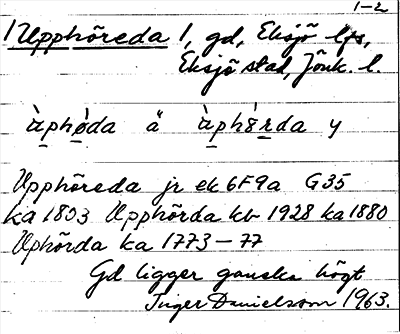 1-2
Upphöreda 1, gd, Eksjö lfs,
Eksjö stad, Jönk. l.
àphø̀da ä àphö̀rda y
Upphöreda jr ek 6F9a G35
ka 1803 Upphörda kb 1928 ka 1880
Uphörda ka 1773-77
Gd ligger ganska högt
Inger Danielsson 1963.